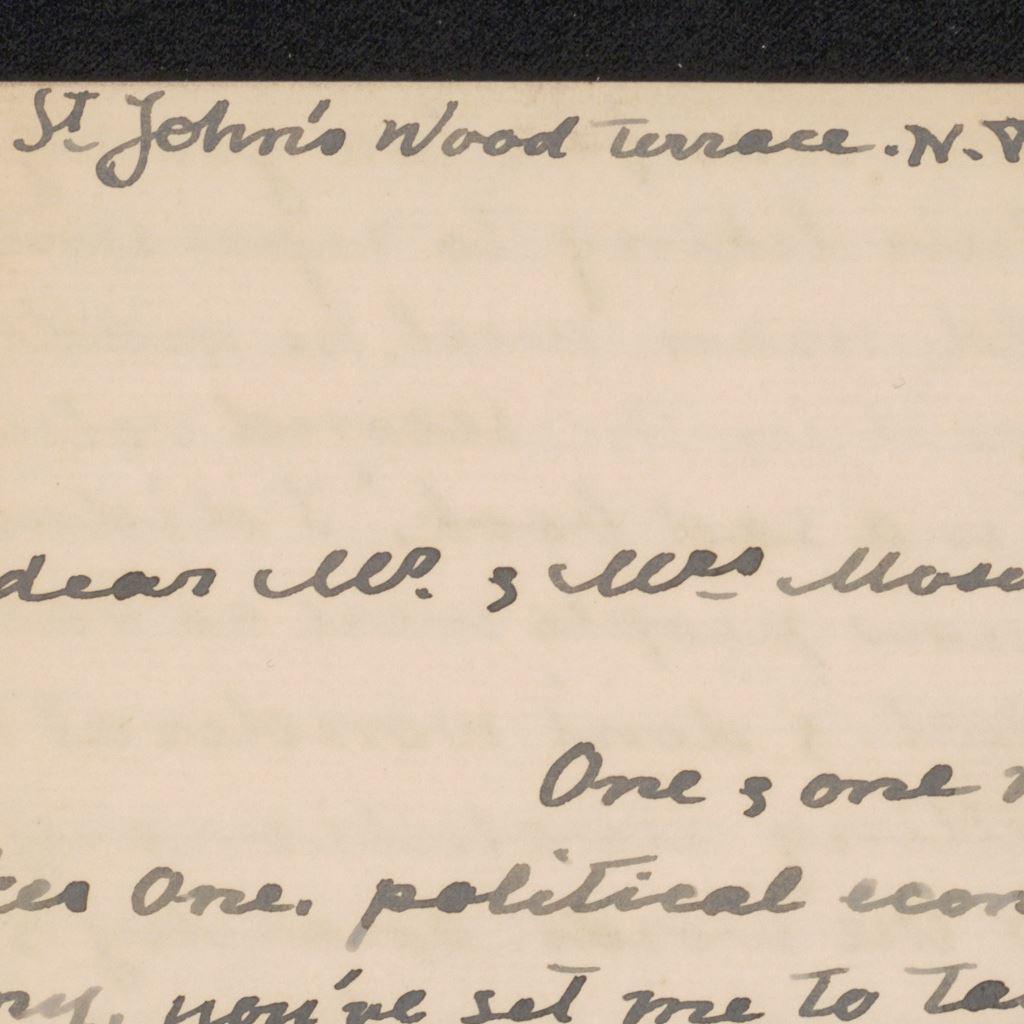 St John's Wood Terrace. N.
dear Mr. & Mrs Mose
One & one
kes One. political econ
my, you've set me to ta